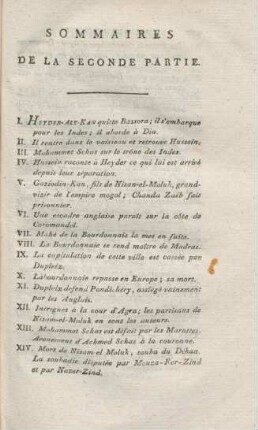 SOMMAIRES
DE LA SECONDE PARTIE.
I. HEYDER-ALY-KAN quitte Bassora; il s'embarque
pour les Indes; il aborde à Diu.
II. Il rentre dans le vaisseau et retrouve Hussein.
III. Mahommet Schas sur le trône des Indes.
IV. Hussein raconte à Heyder ce qui lui est arrivé
depuis leur séparation.
V. Gaziodin-Kan, fils de Nizam-el-Moluk, grand-
visir de l'empire mogol; Chanda Zaëb fait
prisonnier.
VI. Une escadre anglaise paroît sur la côte de
Coromandel.
VII. Mahé de la Bourdonnais la met en fuite.
VIII. La Bourdonnaie se rend maître de Madras.
IX. La capitulation de cette ville est cassée par
Dupleix.
X. Labourdonnais repasse en Europe; sa mort.
XI. Dupleix défend Pondichéry, assiégé vainement
par les Anglais.
XII. Intrigues à la cour d'Agra; les partisans de
Nizam-el-Moluk en sont les auteurs.
XIII. Mahommet Schas est défait par les Marattes.
Avènement d'Achmed Schas à la couronne.
XIV. Mort de Nizam-el Moluk, souba du Dékan.
La soubadie disputée par Mouza-Fer-Zind
et par Nazer-Zind.